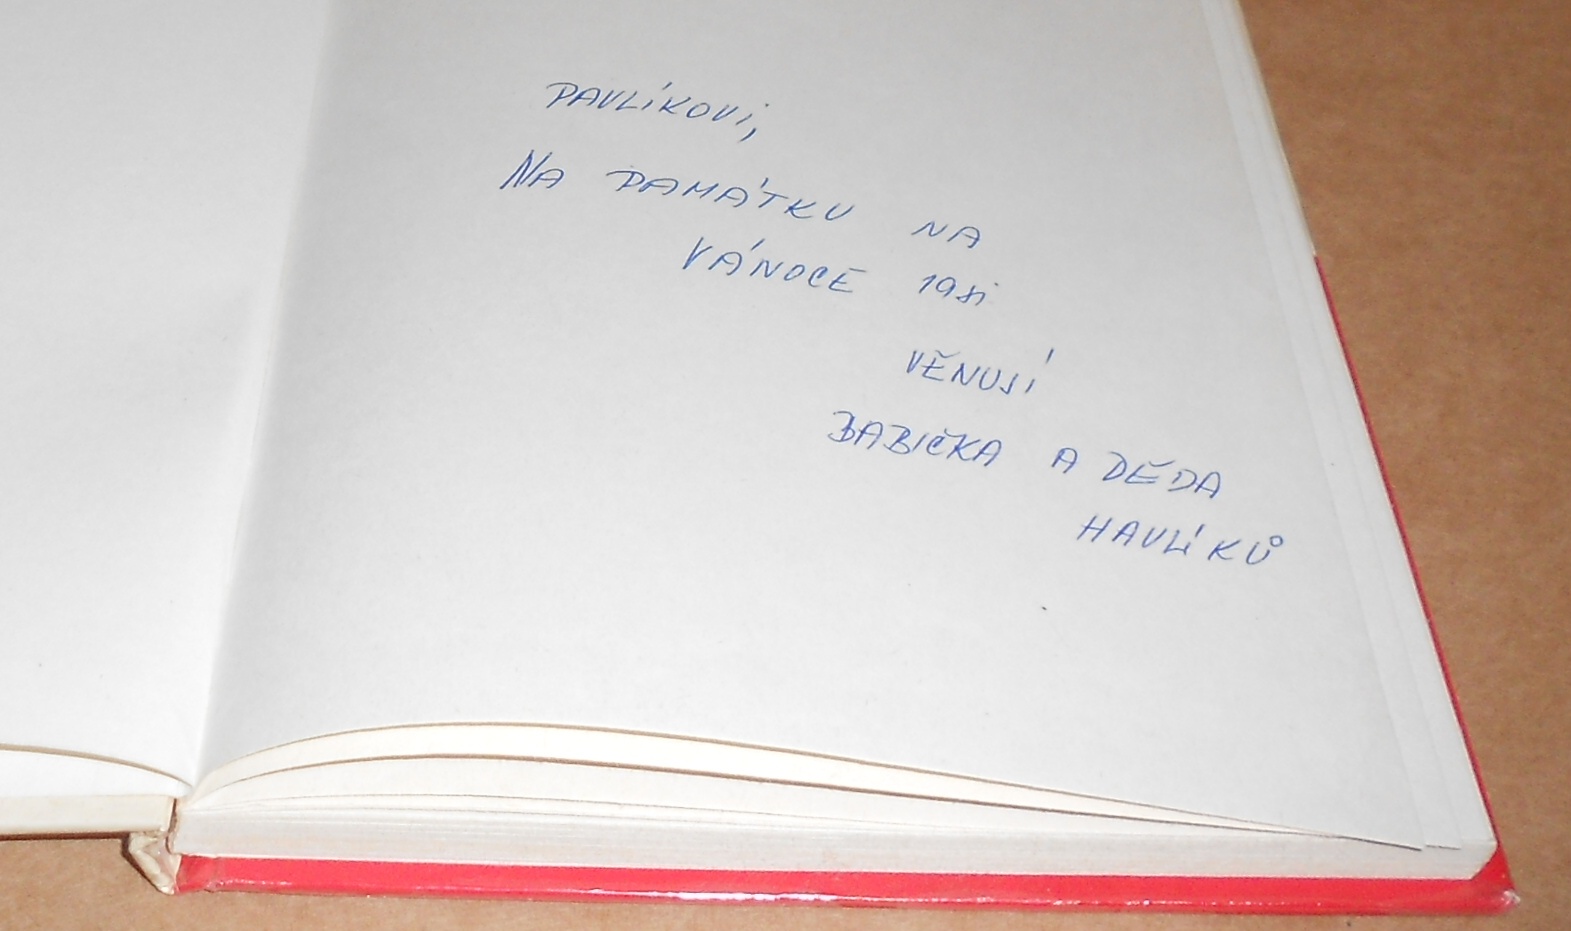 PAVLÍKOVI,
NA PAMÁTKU NA
VÁNOCE 1981
VĚNUJÍ
BABIČKA A DĚDA
HAVLÍKŮ